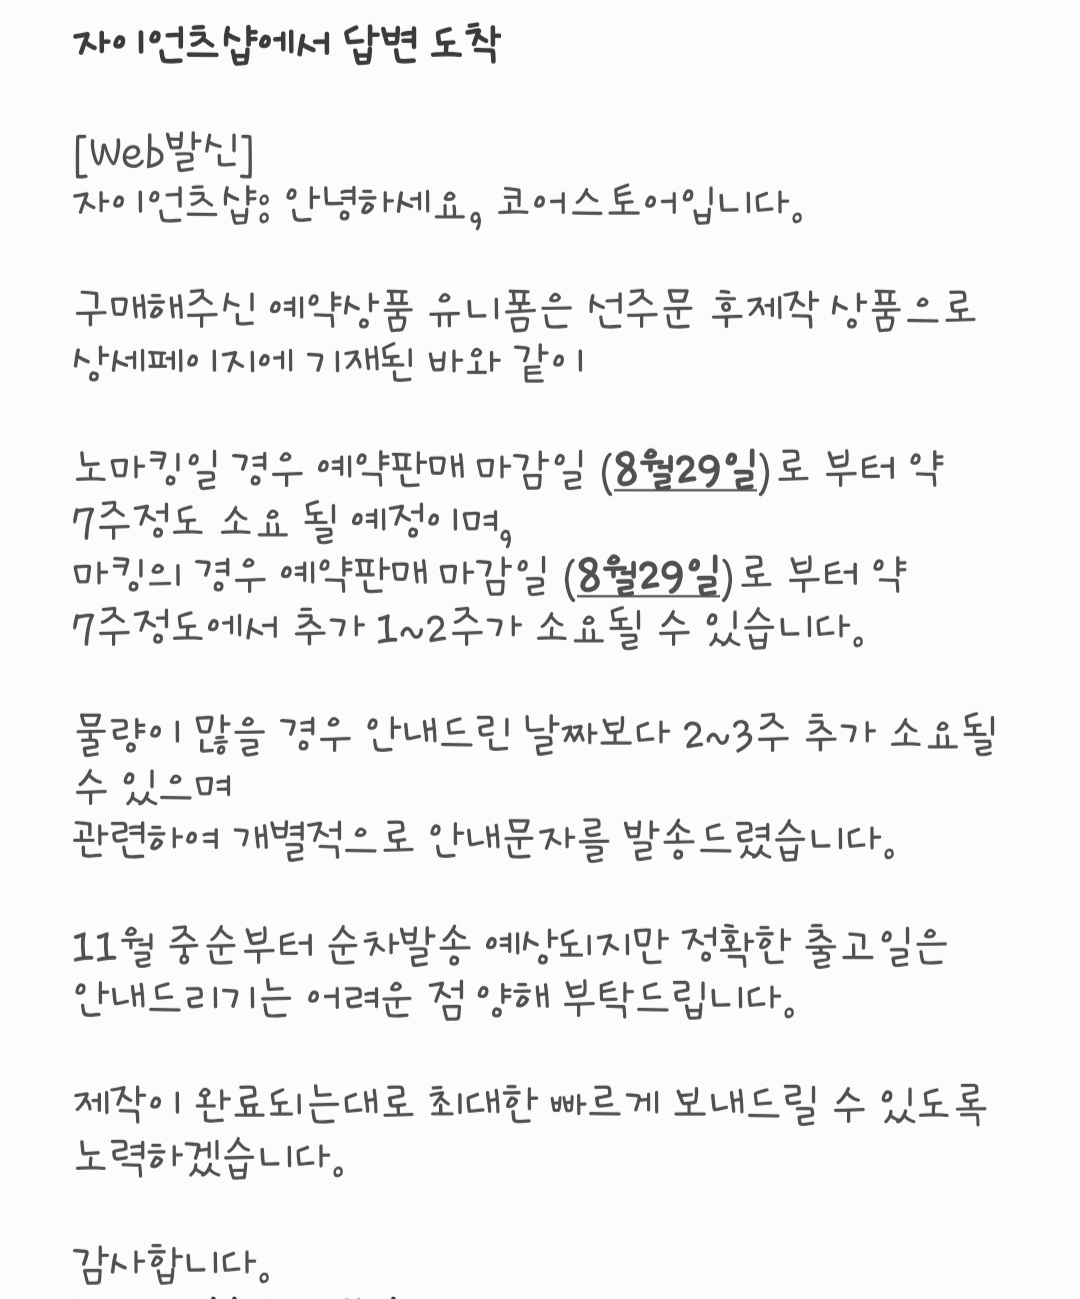 자이언츠샵에서 답변 도착
[Web발신]
자이언츠샵: 안녕하세요, 코어스토어입니다.
구매해주신 예약상품 유니폼은 선주문 후제작 상품으로
상세페이지에 기재된 바와 같이
노마킹일 경우 예약판매 마감일 (8월29일)로 부터 약
7주정도 소요 될 예정이며,
마킹의 경우 예약판매 마감일 (8월29일)로 부터 약
7주정도에서 추가 1~2주가 소요될 수 있습니다.
물량이 많을 경우 안내드린 날짜보다 2~3주 추가 소요될
수 있으며
관련하여 개별적으로 안내문자를 발송드렸습니다.
11월 중순부터 순차발송 예상되지만 정확한 출고일은
안내드리기는 어려운 점 양해 부탁드립니다.
제작이 완료되는대로 최대한 빠르게 보내드릴 수 있도록
노력하겠습니다.
감사합니다.